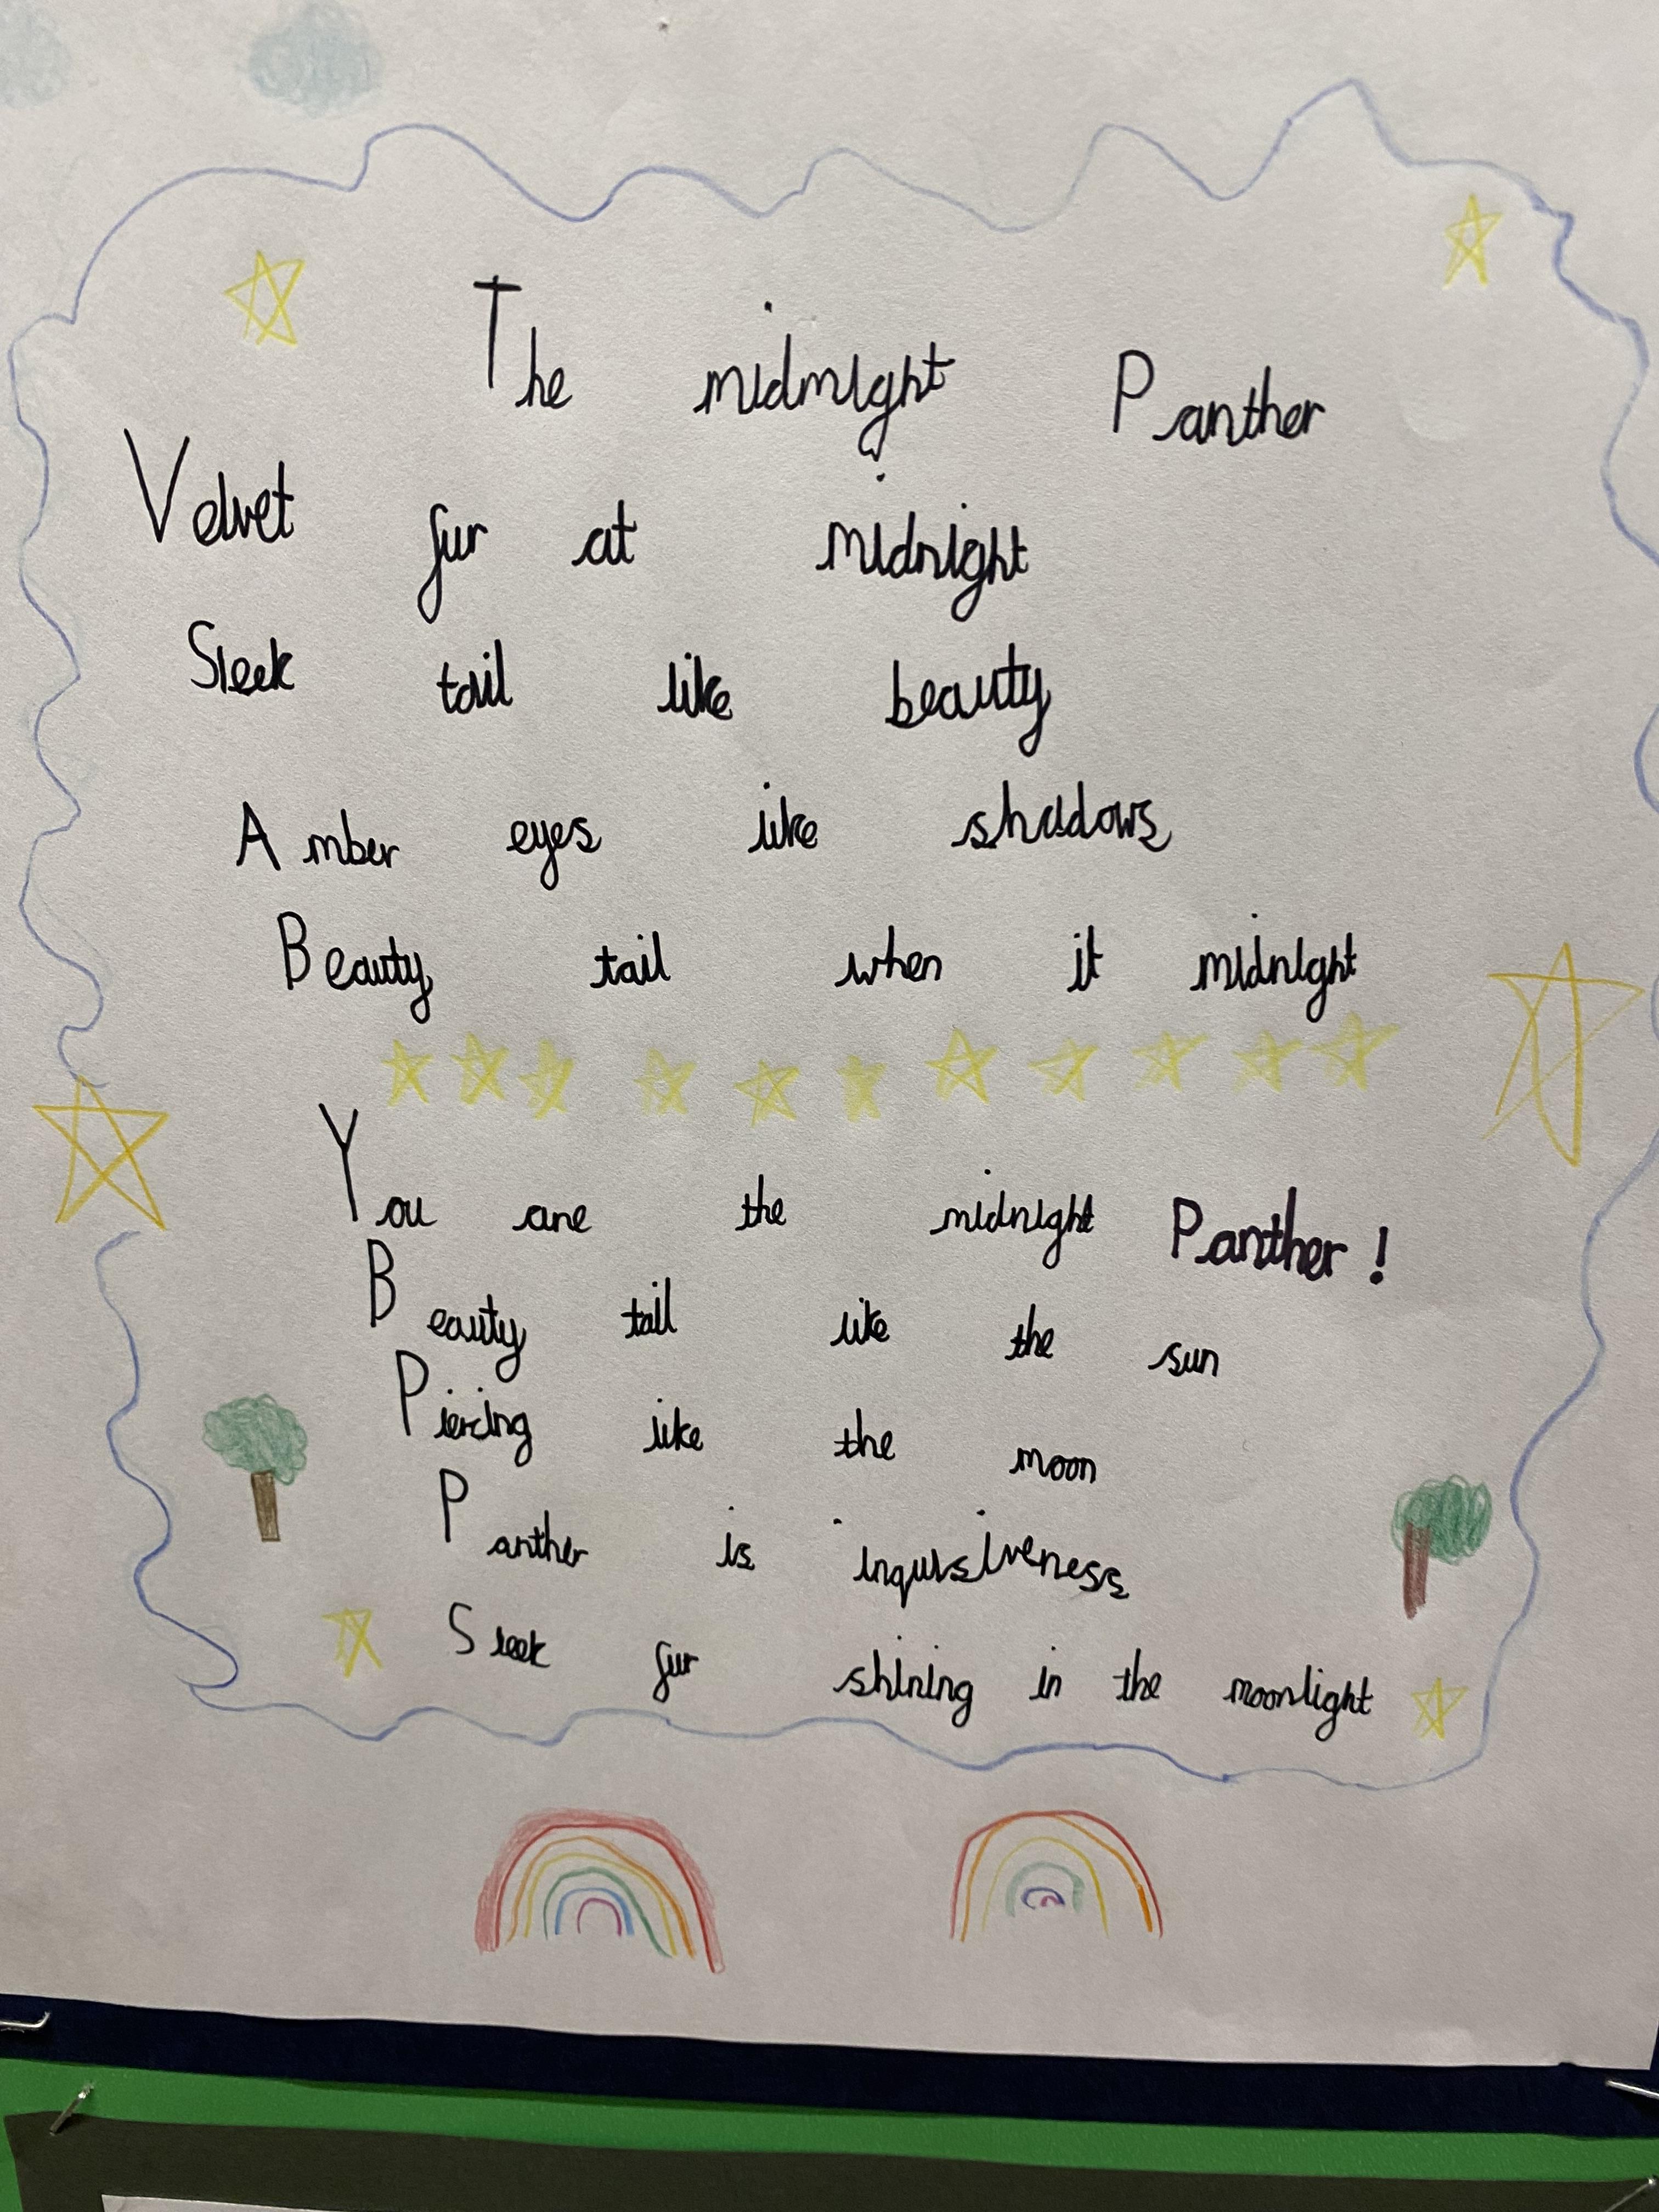 The midnight Panther
Velvet fur at midnight
Sleek tail like beauty
Amber eyes like shadows
Beauty tail when it midnight
You are the midnight Panther!
Beauty tail like the sun
Piercing like the moon
Panther is inquisiveness
Sleek fur shining in the moonlight